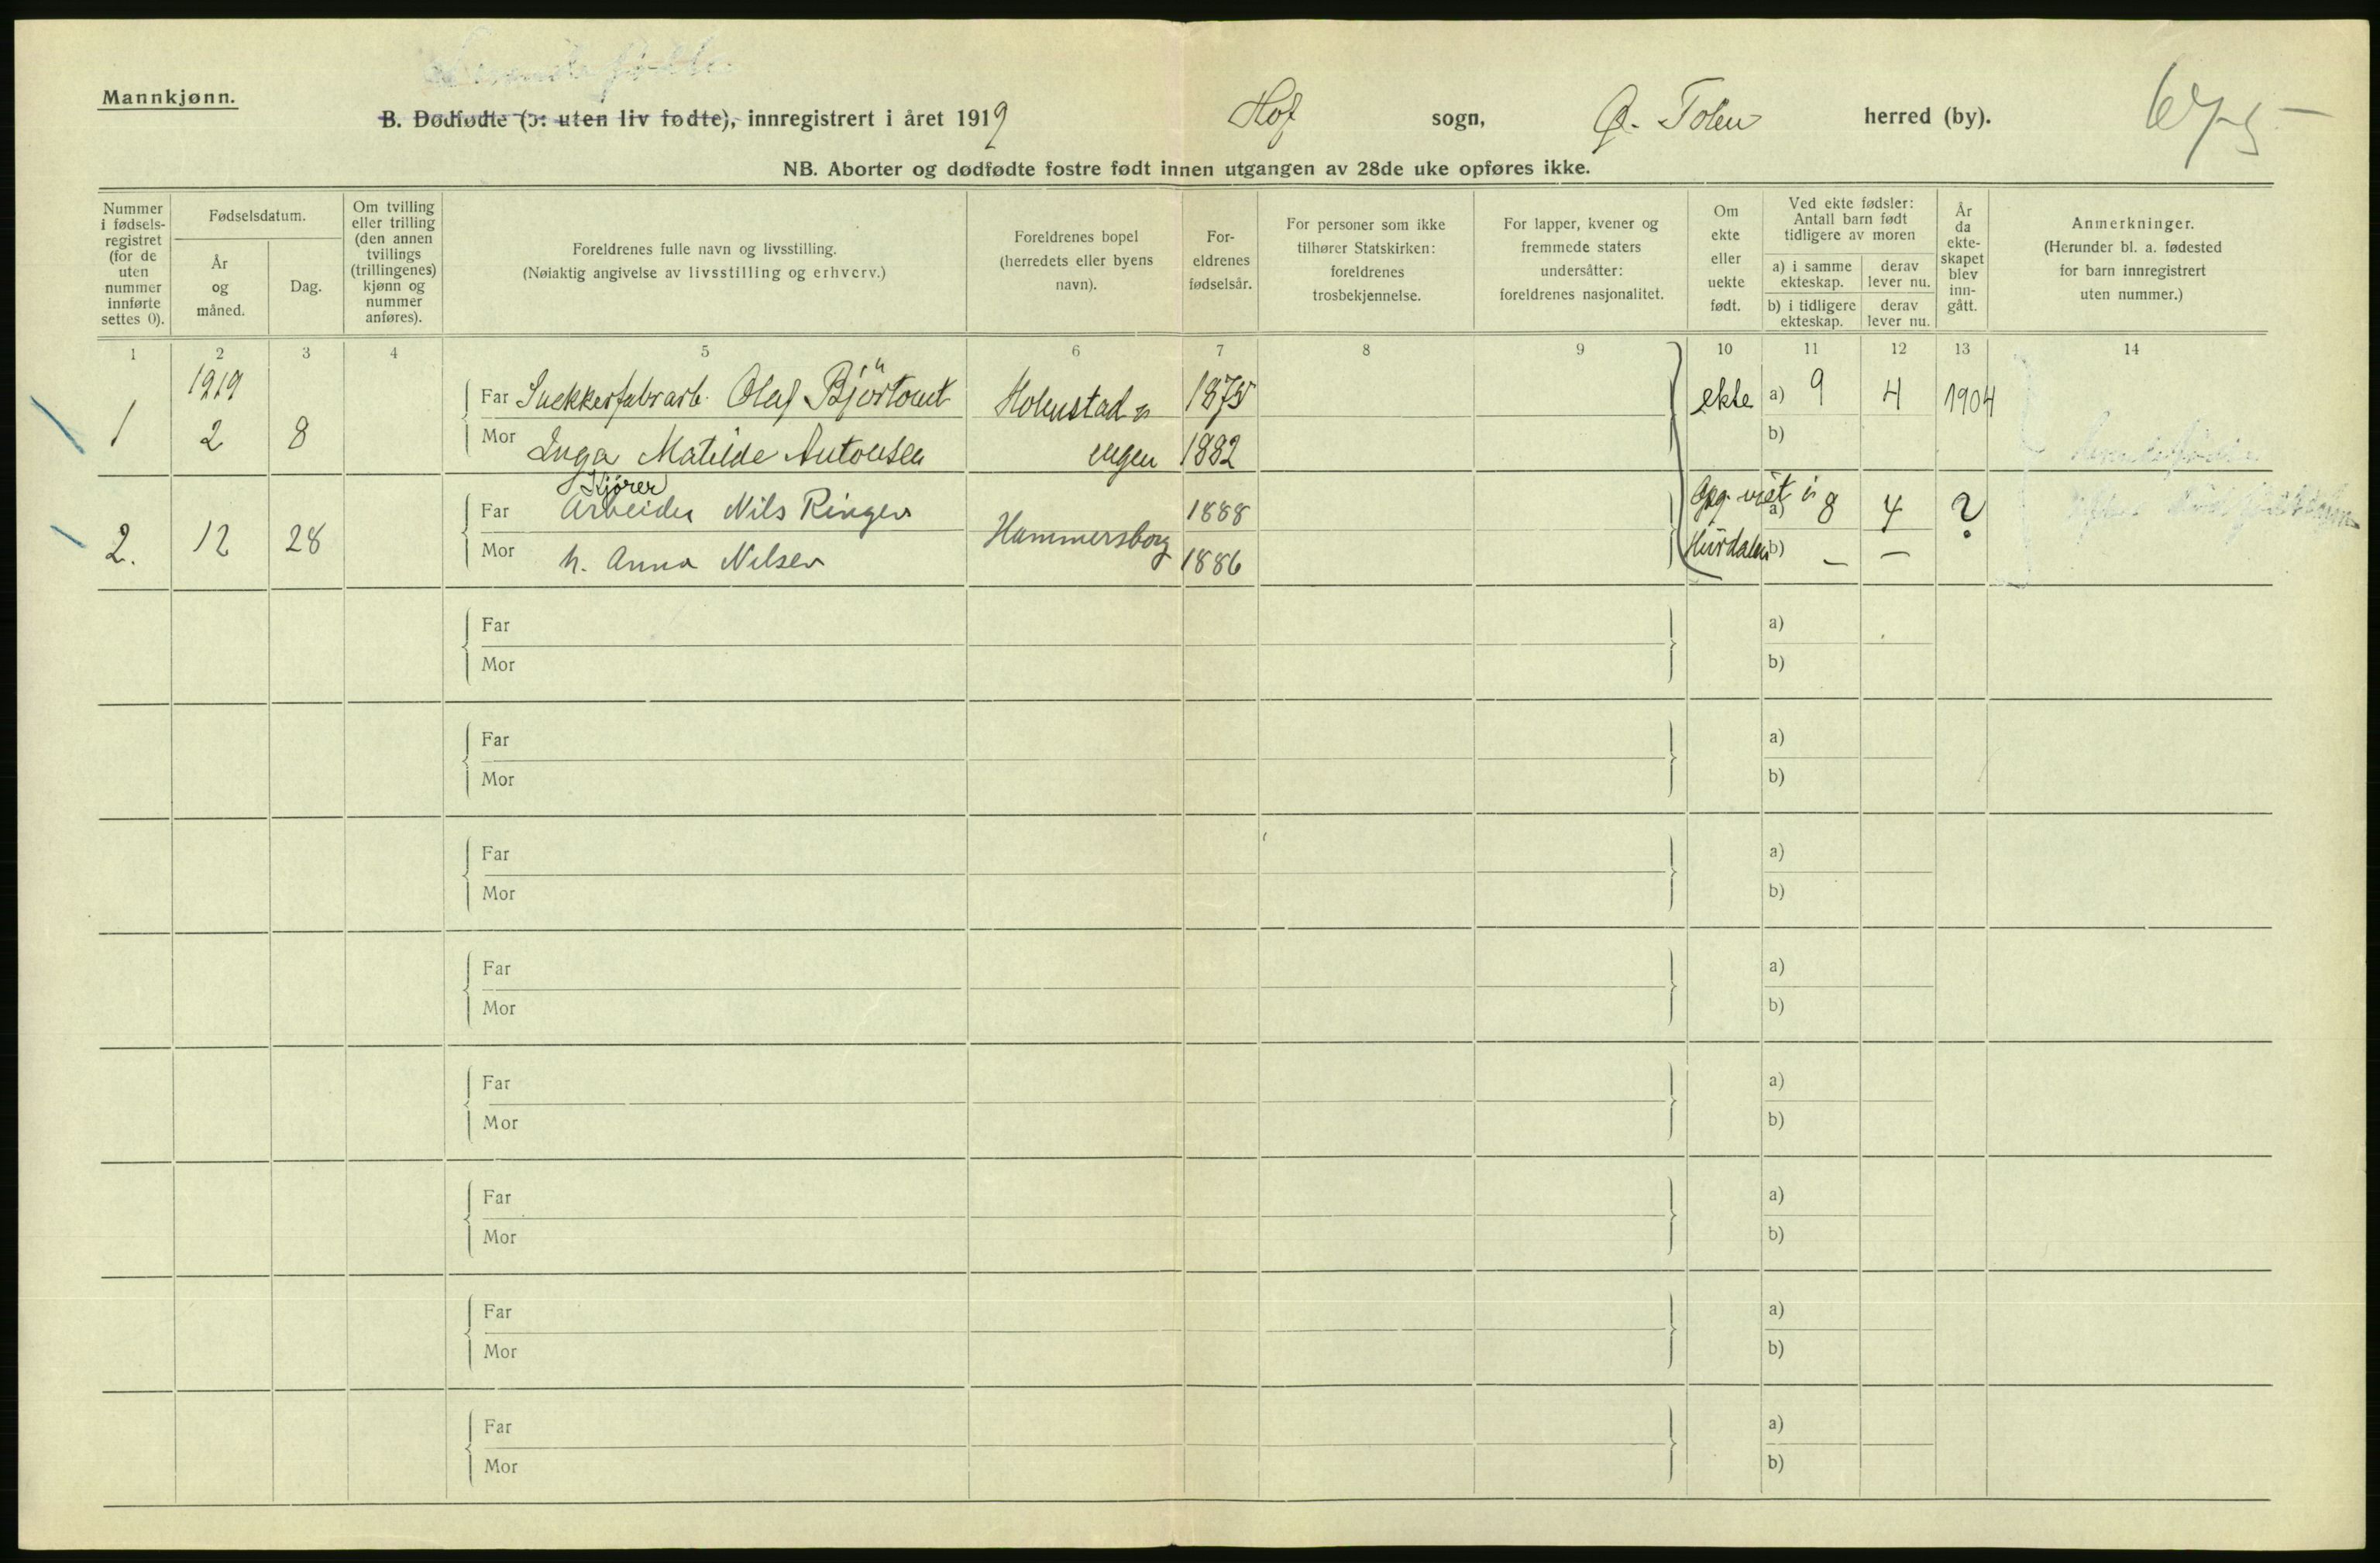 Mannkjønn.
B. Dødfødte (ɔ: uten liv fødte), innregistrert i året 1919
Hof sogn, Ø. Toten herred (by).
NB. Aborter og dødfødte fostre født innen utgangen av 28de uke opføres ikke.
Nummer
i fødsels-
registret
(for de
uten
nummer
innførte
settes 0).
Fødselsdatum.
År
og
måned.
Dag.
Om tvilling
eller trilling
(den annen
tvillings
(trillingenes)
kjønn og
nummer
anføres).
Foreldrenes fulle navn og livsstilling.
(Nøiaktig angivelse av livsstilling og erhverv.)
Foreldrenes bopel
(herredets eller byens
navn).
For-
eldrenes
fødselsår.
For personer som ikke
tilhører Statskirken:
foreldrenes
trosbekjennelse.
For lapper, kvener og
fremmede staters
undersåtter:
foreldrenes nasjonalitet.
Om
ekte
eller
uekte
født.
Ved ekte fødsler:
Antall barn født
tidligere av moren
a) i samme
ekteskap.
derav
lever nu.
b) i tidligere
ekteskap.
derav
lever nu.
År
da
ekte-
skapet
blev
inn-
gått.
Anmerkninger.
(Herunder bl. a. fødested
for barn innregistrert
uten nummer.)
1 2 3 4 5 6 7 8 9 10 11 12 13 14
1919
Far Snekkerfabrarb. Olaf 1875 ekte a) 9 4 1904
1 2 8
Mor Inga Matilde Antonsen 1882 b)
Kjører
Far Arbeider Nils Ringen 1888 a) 8 4 ?
2. 12 28 Hammersborg
Mor h. Anna Nilsen 1886 Hurdalen b) – –
Far a)
Mor b)
Far a)
Mor b)
Far a)
Mor b)
Far a)
Mor b)
Far a)
Mor b)
Far a)
Mor b)
Far a)
Mor b)
Far a)
Mor b)